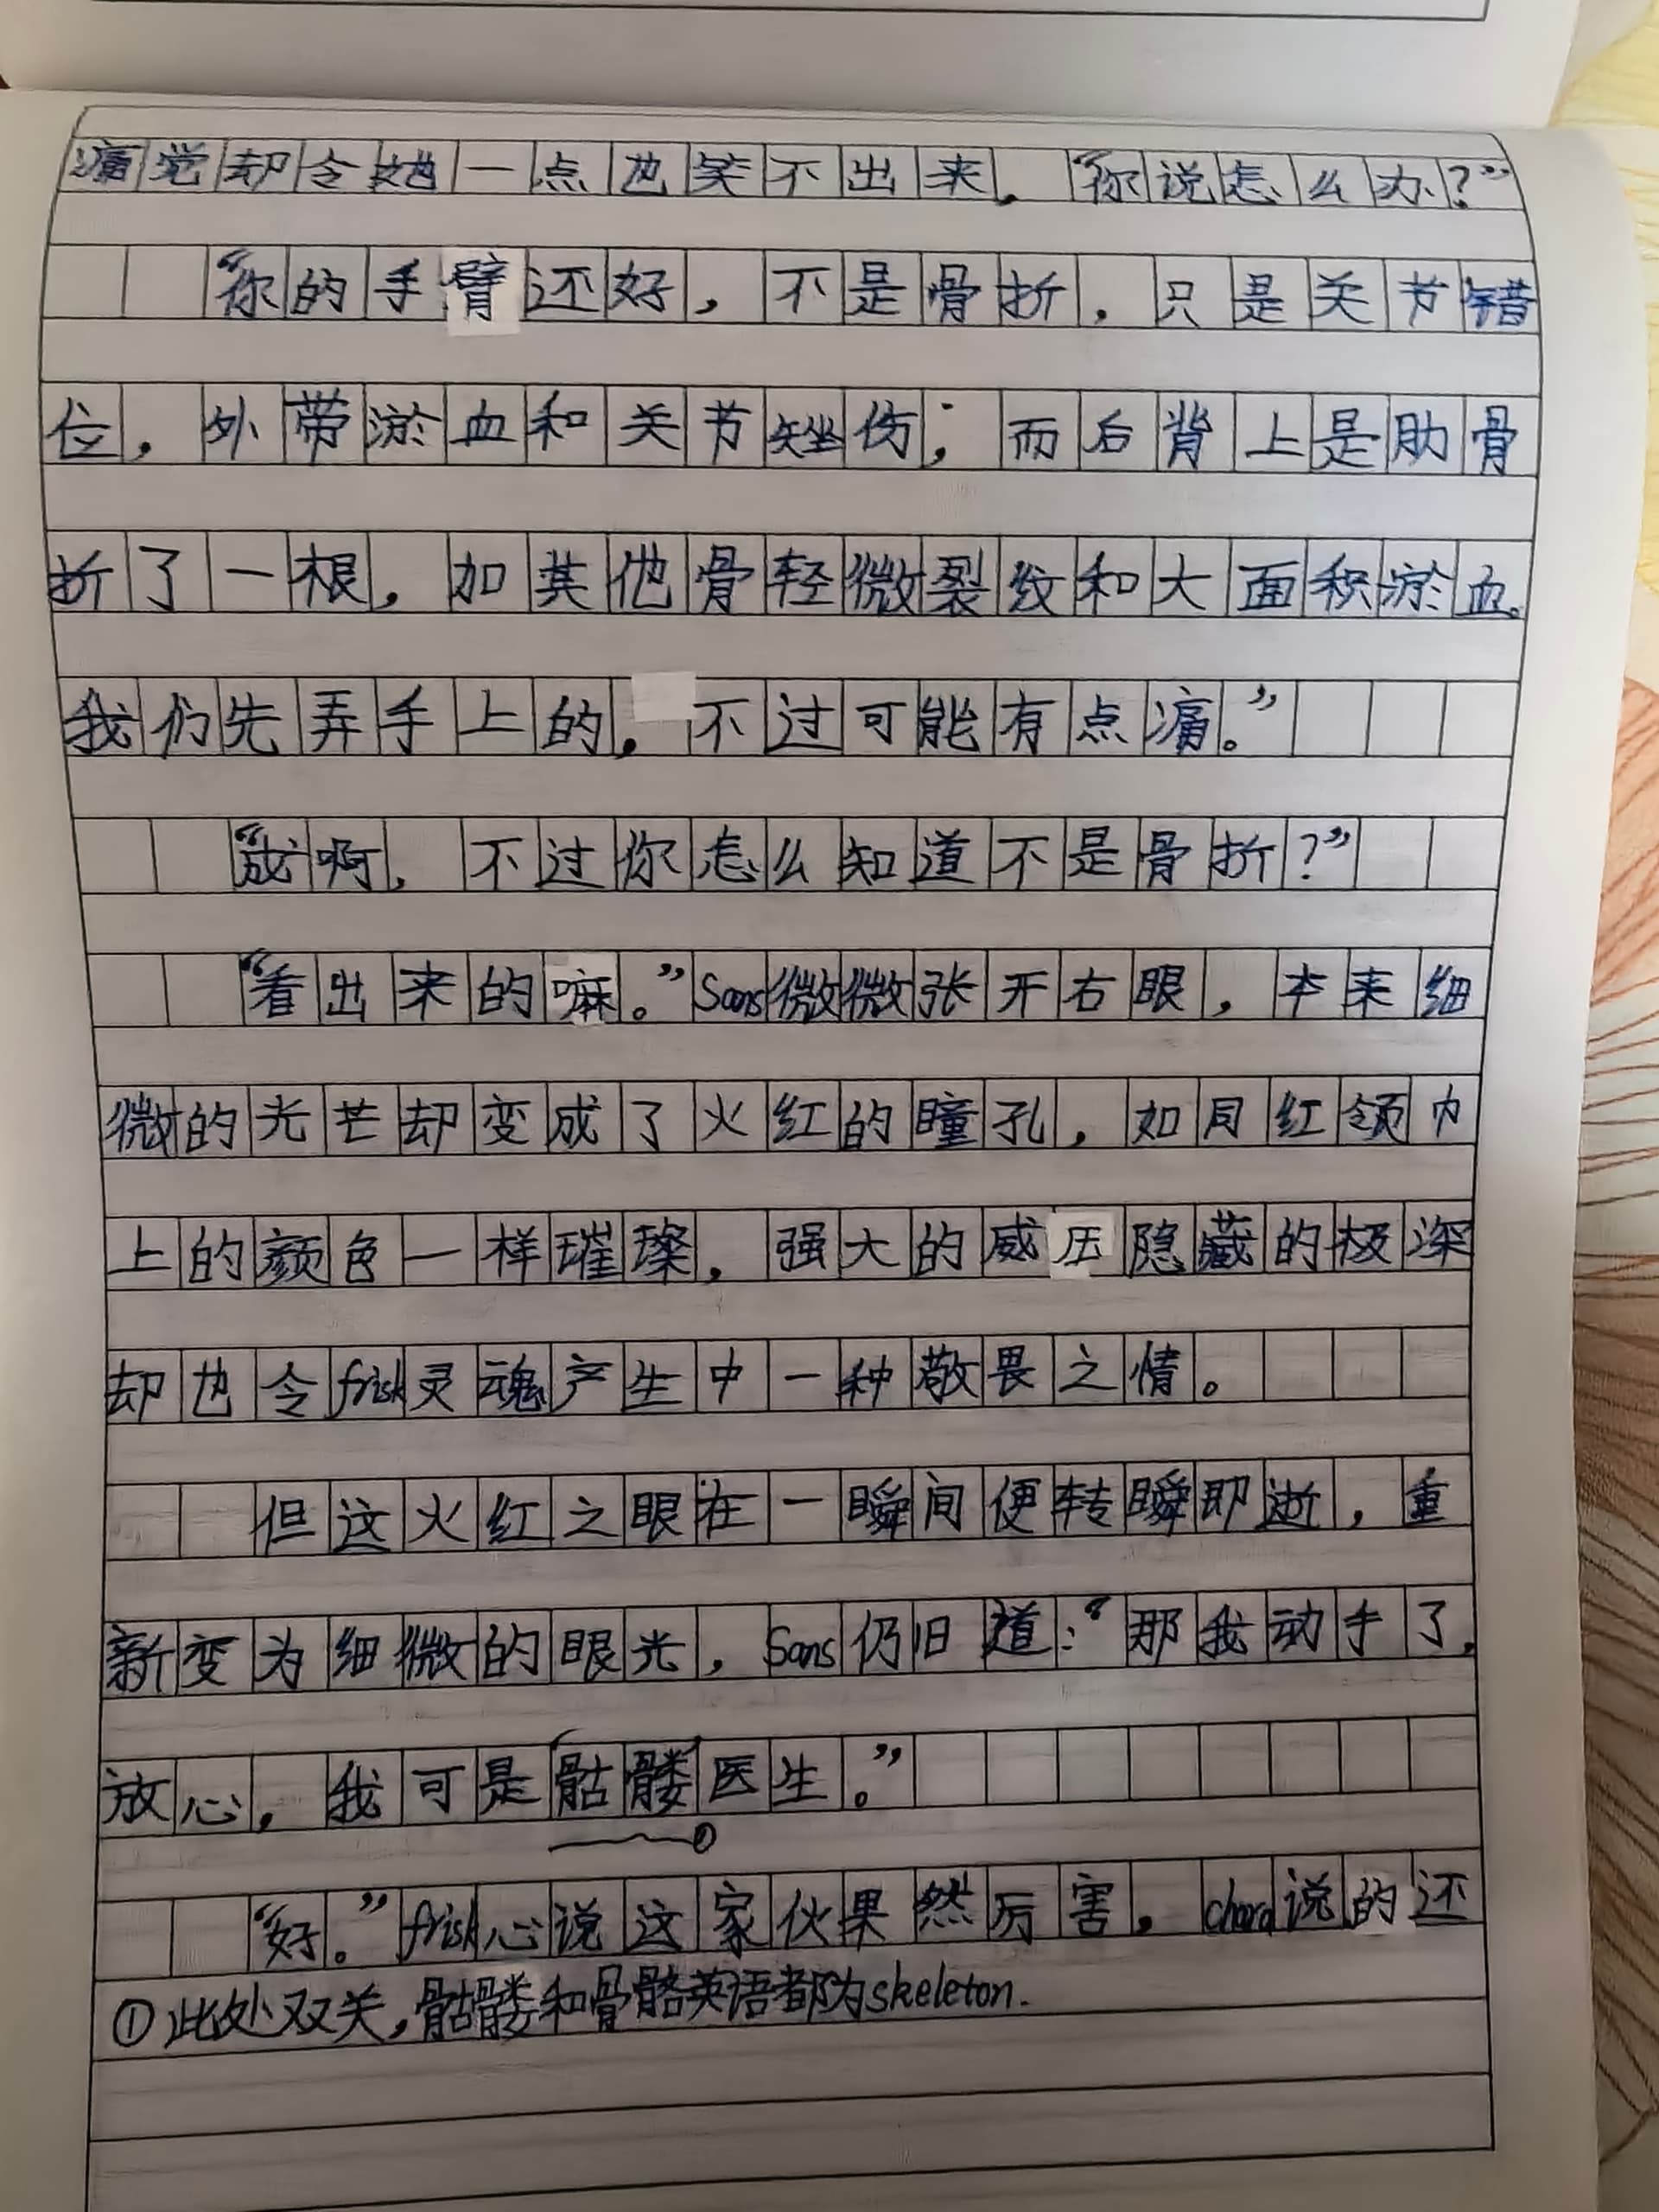 痛觉却令她一点也笑不出来。“你说怎么办？”
“你的手臂还好，不是骨折，只是关节错
位，外带淤血和关节矬伤；而后背上是肋骨
折了一根，加其他骨轻微裂纹和大面积淤血。
我们先弄手上的，不过可能有点痛。”
“成啊，不过你怎么知道不是骨折？”
“看出来的嘛。”Sans微微张开右眼，本来细
微的光芒却变成了火红的瞳孔，如同红领巾
上的颜色一样璀璨，强大的威压隐藏的极深
却也令frisk灵魂产生中一种敬畏之情。
但这火红之眼在一瞬间便转瞬即逝，重
新变为细微的眼光，Sans仍旧道：“那我动手了，
放心，我可是骷髅医生。”
①
“好。”frisk心说这家伙果然厉害，chara说的还
①此处双关，骷髅和骨骼英语都为skeleton.